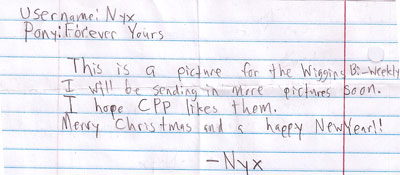 Username: Nyx
Pony: Forever Yours
This is a picture for the Wiggins Bi-Weekly
I will be sending in more pictures soon.
I hope CPP likes them.
Merry Christmas and a happy New Year!!
-Nyx